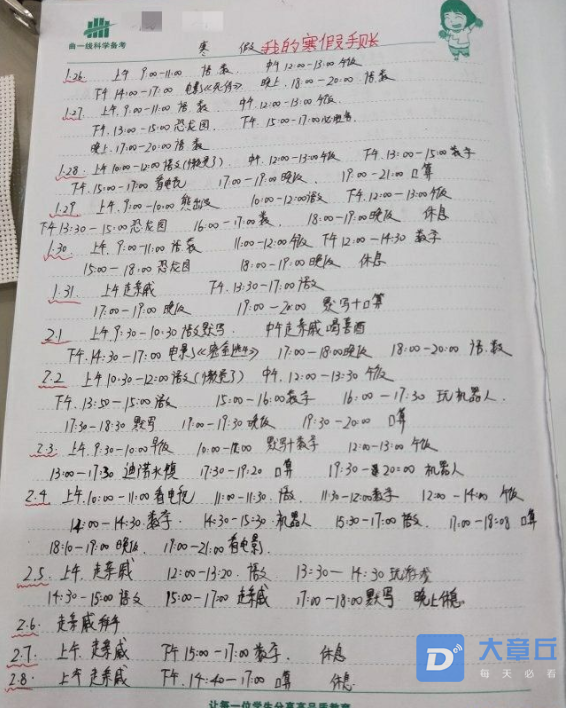 曲一线科学备考
寒 假 我的寒假手账
1.26. 上午 9:00-11:00 语.数. 中午12:00-13:00 午饭
下午14:00-17:00 电影 晚上.18:00-20:00 语.数
1.27. 上午.9:00-11:00 语.数 中午.12:00-13:00午饭.
下午.13:00-15:00恐龙园. 下午.15:00-17:00
晚上.17:00-20:00 语数
1.28. 上午10:00-12:00语文(懒觉了) 中午.12:00-13:00午饭 下午.13:00-15:00数学
下午.15:00-17:00看电视 17:00-19:00晚饭 19:00-21:00口算
1.29 上午.9:00-10:00.熊出没 10:00-12:00语文 下午.12:00-13:00午饭
下午13:30-15:00恐龙园 16:00-17:00数. 18:00-19:00晚饭 休息
1.30 上午.9:00-11:00 语数 11:00-12:00午饭 下午12:00-14:30 数学
15:00-18:00恐龙园 18:00-19:00 晚饭 休息
1.31. 上午走亲戚 下午.13:30-17:00语文
17:00-19:00 晚饭 19:00-20:00 默写+口算
2.1 上午.9:30-10:30语文默写. 中午走亲戚喝喜酒
下午.14:30-17:00 电影 17:00-18:00晚饭 18:00-20:00 语.数
2.2 上午10:30-12:00语文(懒觉了) 中午.12:00-13:30 午饭
下午.13:50-15:00语文 15:00-16:00数学 16:00-17:30 玩机器人.
17:30-18:30 默写 17:00-19:30晚饭 19:30-20:00 口算
2.3. 上午.9:30-10:00早饭 默写+数学 12:00-13:00 午饭
13:00-17:30 迪诺水镇 17:30-19:20 口算 19:30-20:00 机器人
2.4 上午.10:00-11:00看电视 11:00-11:30.语文. 11:30-12:00数学 12:00-14:00 午饭
14:00-14:30.数学. 14:30-15:30.机器人 15:30-17:00语文. 17:00-18:08 口算
18:10-19:00 晚饭. 19:00-21:00看电影.
2.5. 上午.走亲戚 12:00-13:20.语文 13:30-14:30玩游戏
14:30-15:00语文 15:00-17:00走亲戚 17:00-18:00默写 晚上休息.
2.6. 走亲戚拜年
2.7. 上午.走亲戚 下午15:00-17:00数学. 休息
2.8. 上午走亲戚 下午.14:40-17:00 口算 休息.
大章丘
每天必看
让每一位学生分享高品质教育